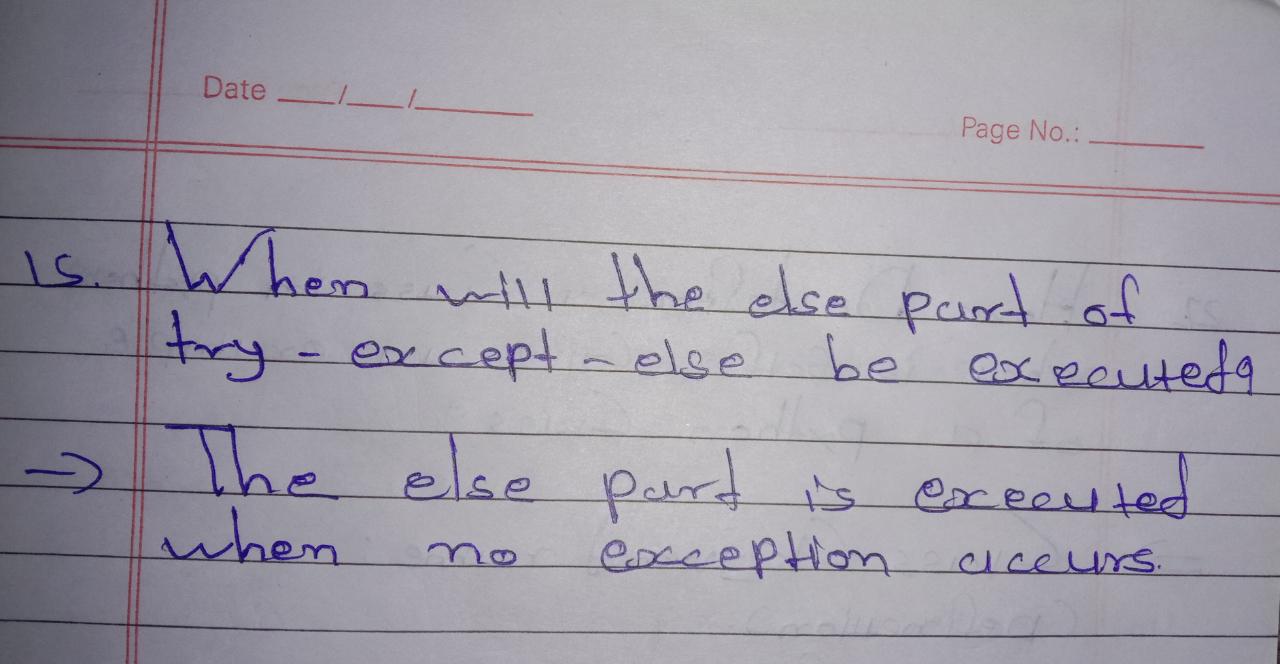 Date ___/___/______
Page No.: ______
15. When will the else part of
try - except - else be executed?
→ The else part is executed
when no exception occurs.